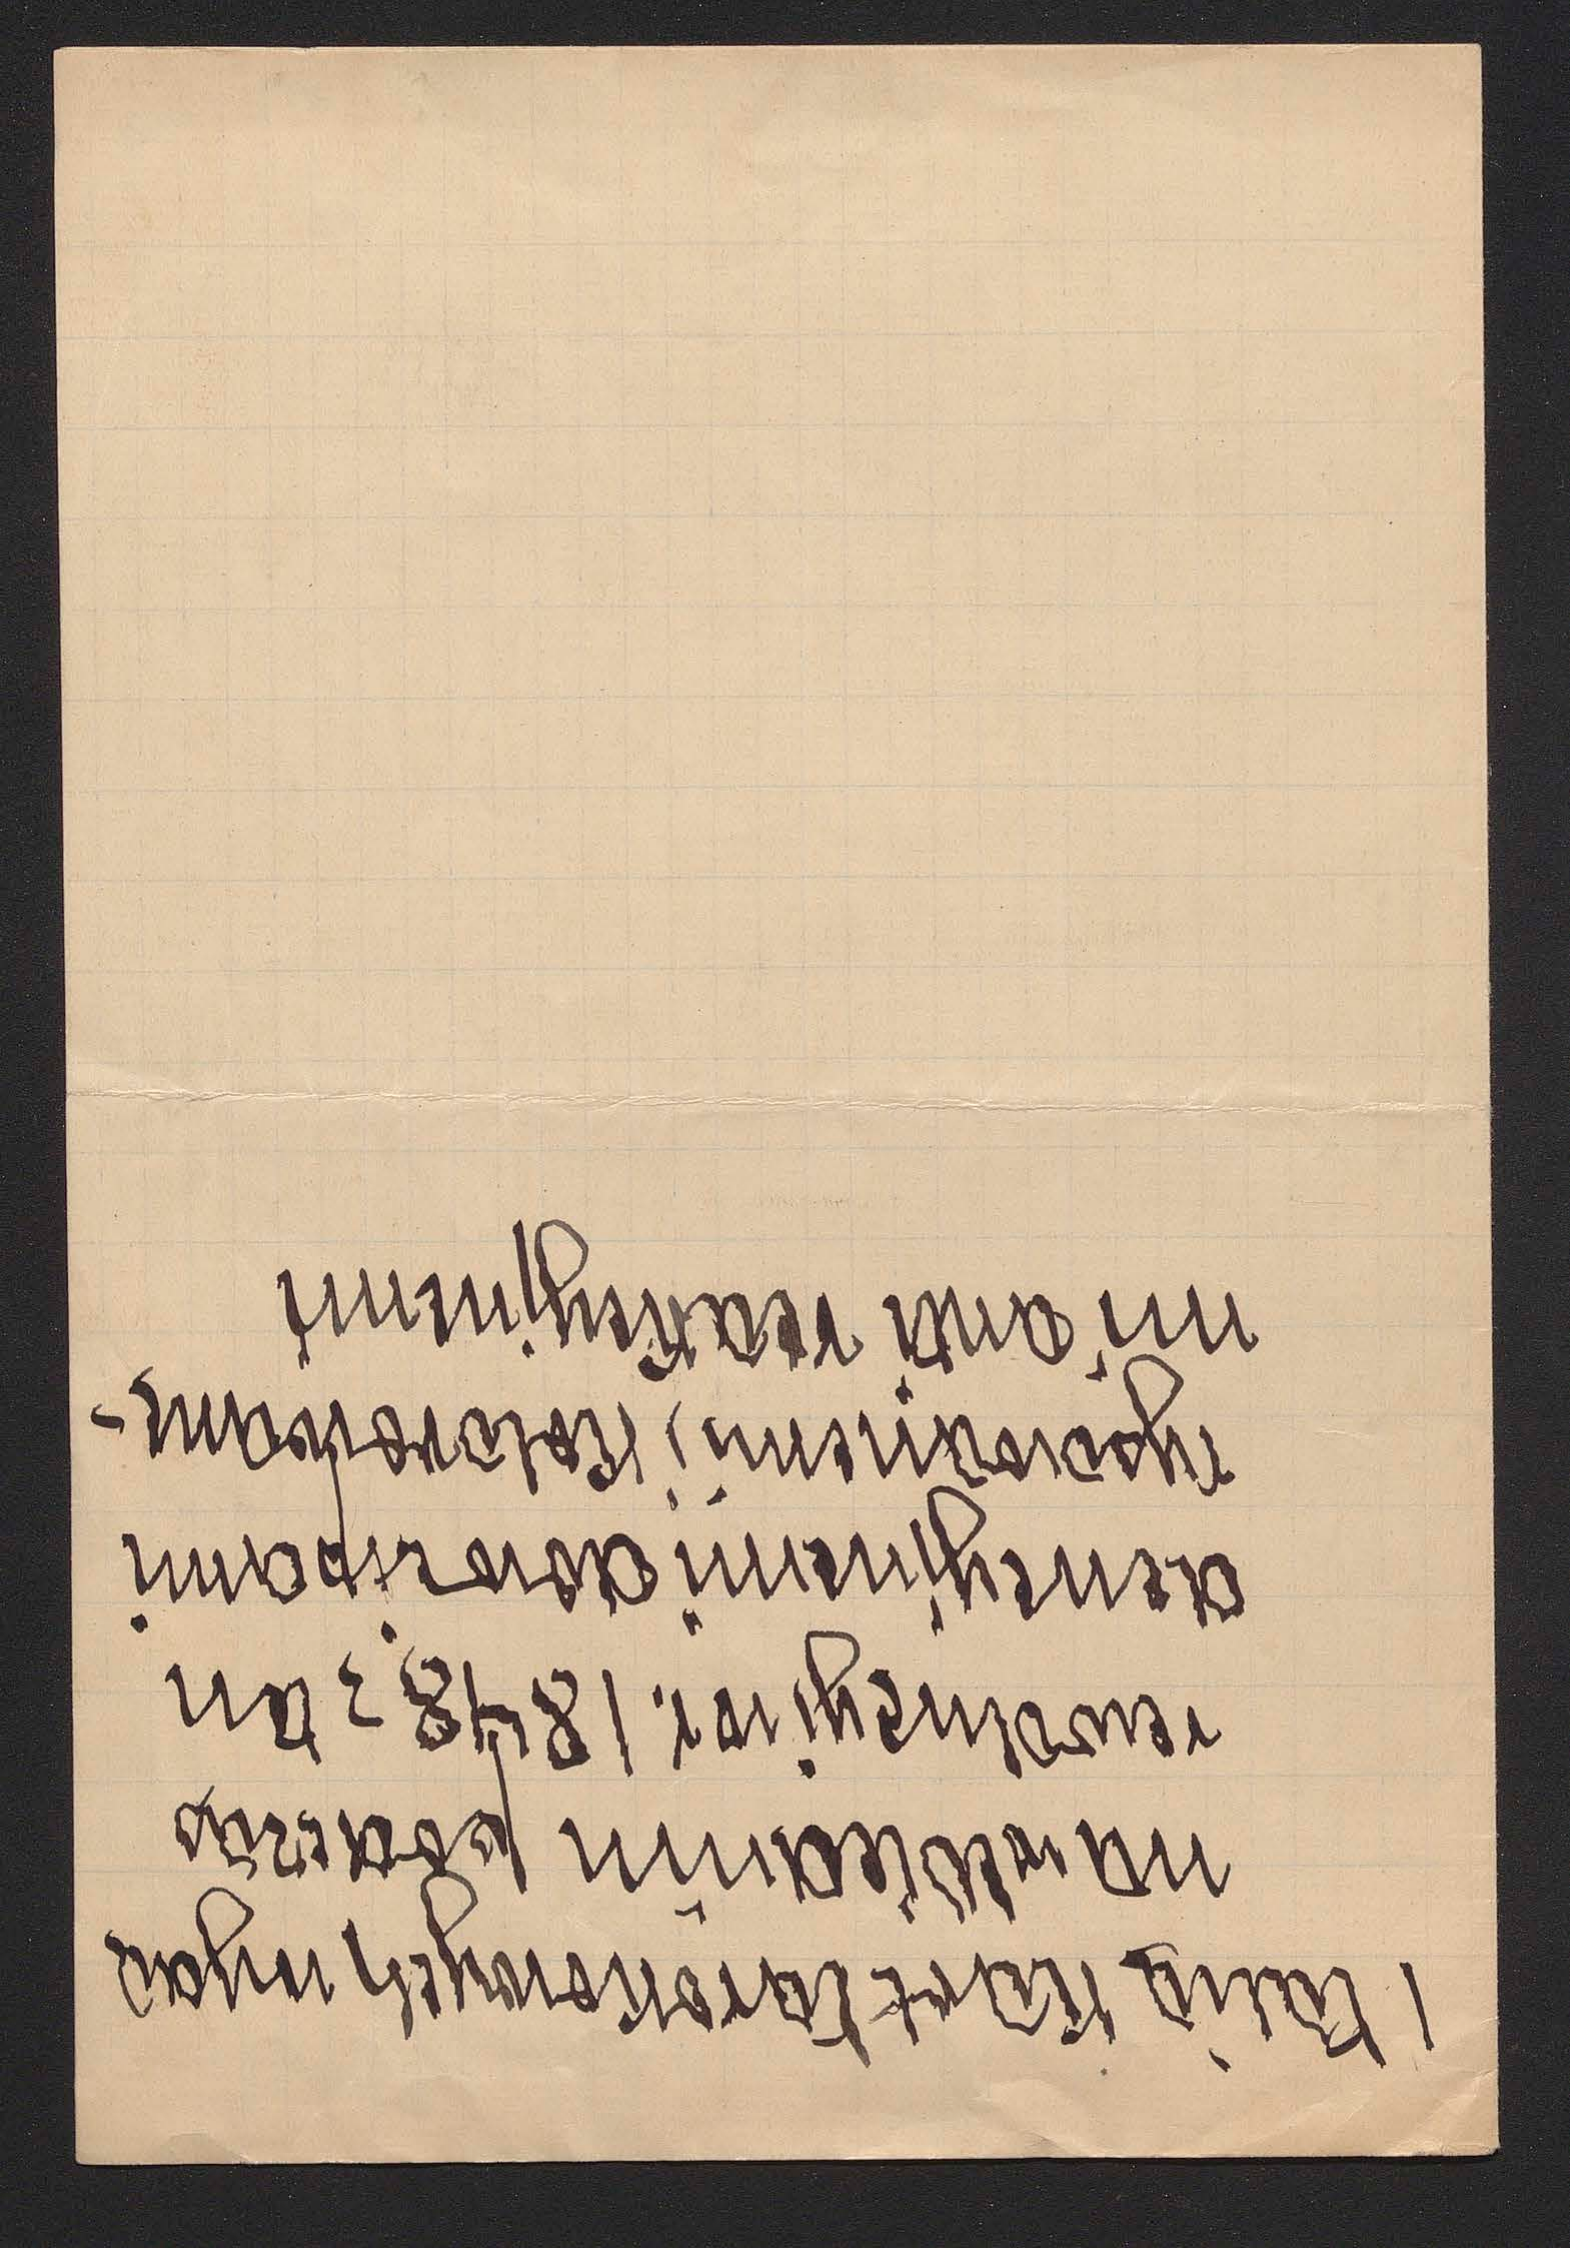 1 talia kart tarokowych wyda
na w Wiedniu podczas
rewolucyi w r. 1848 z ten
dencyjnemi dowcipami
rysowanemi, kolorowane-
mi, anti reakcyjnemi